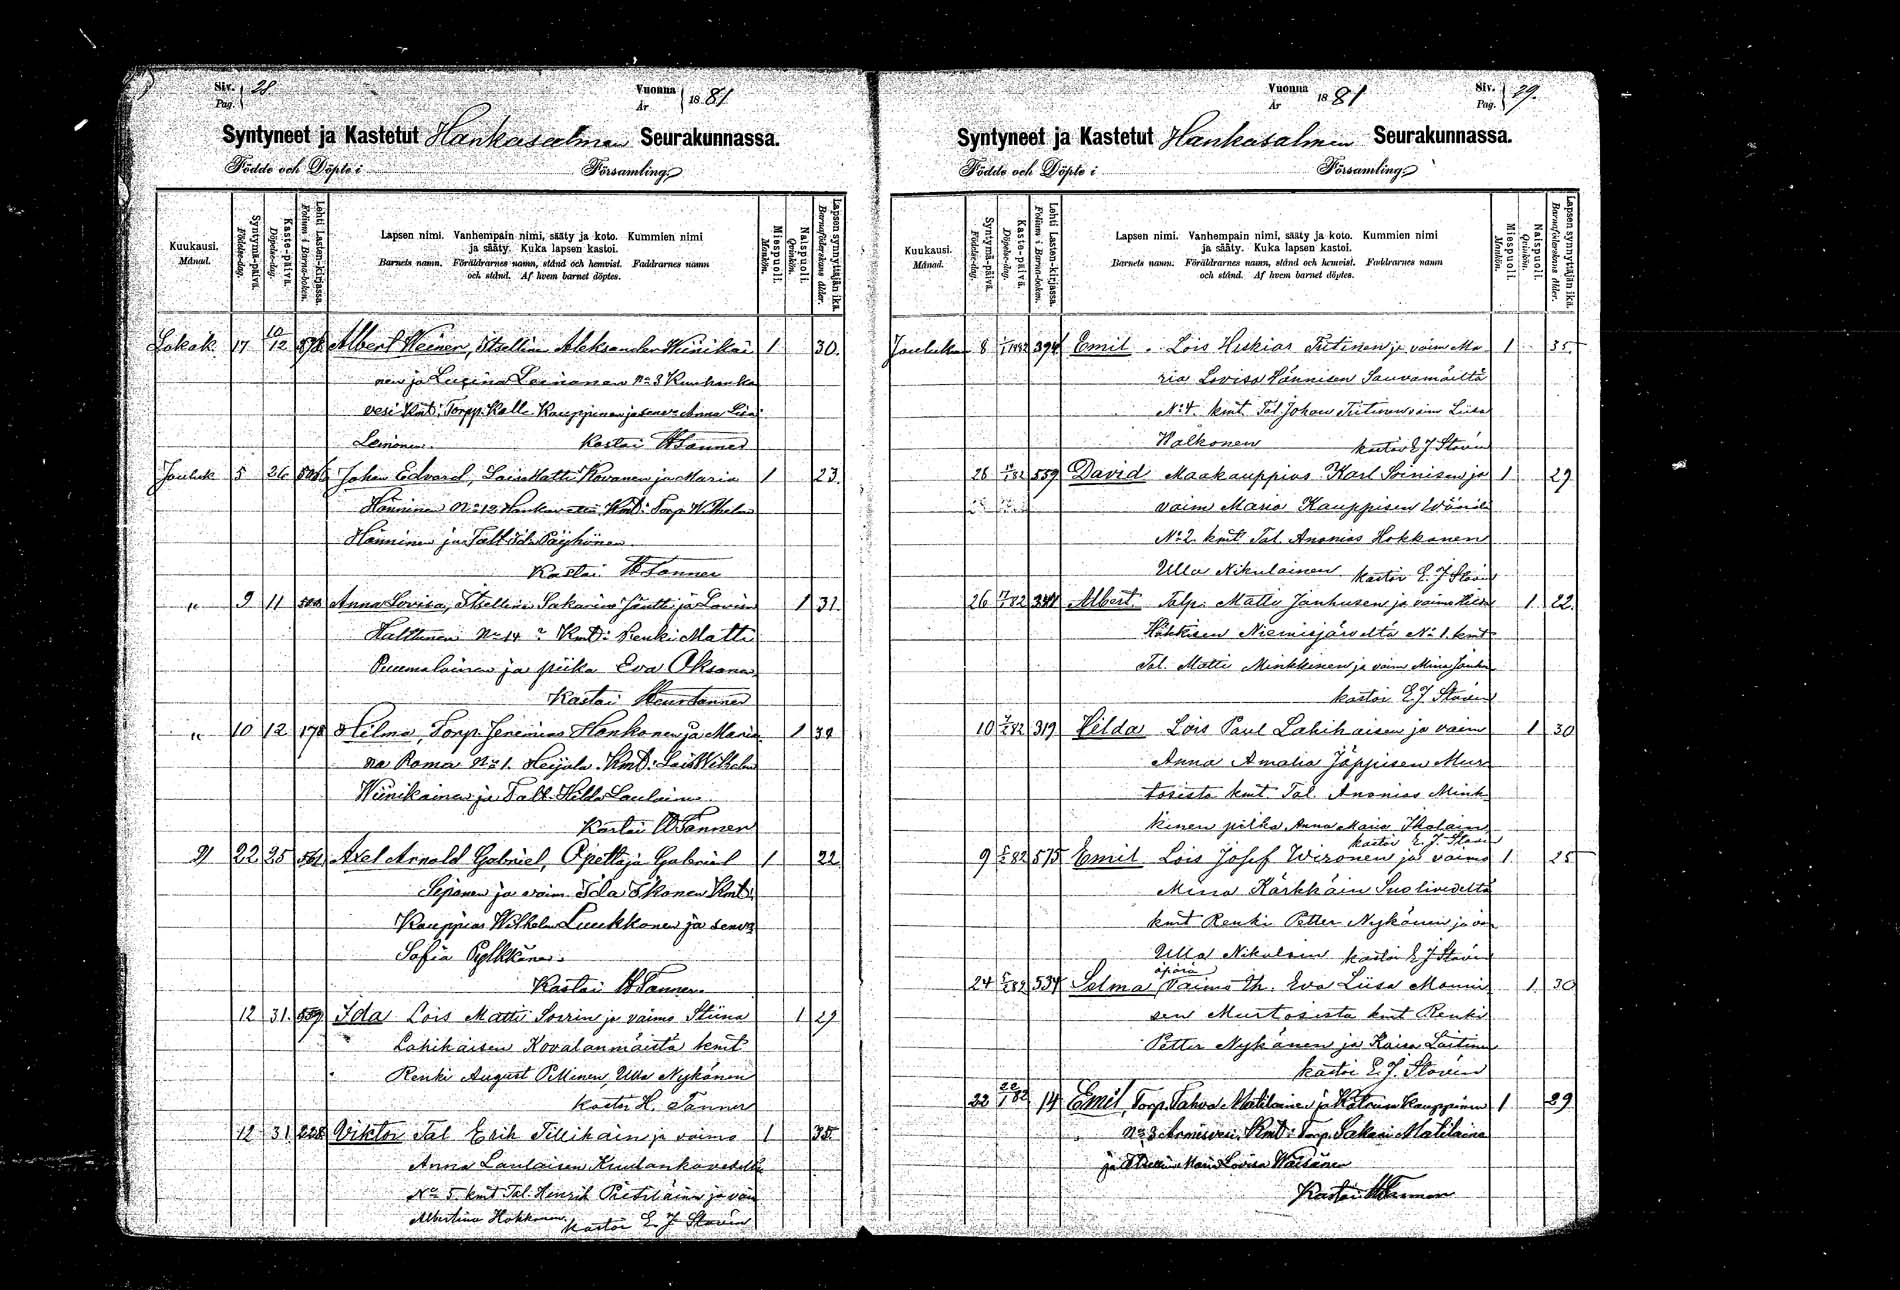 Siv. Pag. 28.
Vuonna År 1881
Syntyneet ja Kastetut Hankasalmen Seurakunnassa.
Födde och Döpte i Församling.
Kuukausi. Månad.
Syntymä-päivä. Födelse-dag.
Kaste-päivä. Döpelse-dag.
Lehti Lasten-kirjassa. Folium i Barna-boken.
Lapsen nimi. Vanhempain nimi, sääty ja koto. Kummien nimi
ja sääty. Kuka lapsen kastoi.
Barnets namn. Föräldrarnes namn, stånd och hemvist. Faddrarnes namn
och stånd. Af hvem barnet döptes.
Miespuoli. Mankön.
Naispuoli. Qvinkön.
Lapsen synnyttäjän ikä. Barnaföderskans ålder.
Lokak. 17 10/12 578 Albert Weiner, Itsellinen Aleksander Wiinikai 1 30.
nen ja Lusina Leinonen No 3 Kuuhanka
vesi Kmt: Torpp. Kalle Kauppinen ja Anna Lisa
Leinonen. Kastoi HTanner
Jouluk 5 26 Johan Edvard, Lois Matti Kovanen ja Maria 1 23.
Hänninen No 12 Kmt: Torp. Wilhelm
Hänninen ja Talt. Ida Päyhönen
Kastoi HTanner
" 9 11 Anna Lovisa, Itsellinen Sakarius Jäntti ja Lovisa 1 31.
Halttunen No 14 Kmt: Renki Matti
Puumalainen ja piika Eva Oksanen
Kastoi Tanner
" 10 12 178 Hilma, Torp. Jeremias Honkonen ja Maria 1
na Roma No 1. Heijala. Kmt: Lois Wilhelm
Wiinikainen ja Talt. Hilda Laulainen
Kastoi HTanner
22 25 561 Axel Arnold Gabriel, Opettaja Gabriel 1 22
Seponen ja vaim. Ida Ikonen Kmt:
Kauppias Wilhelm Luukkonen ja
Sofia Pylkkänen.
Kastoi HTanner.
12 31. 559 Ida Lois Matti Sorrin ja vaimo Stiina 1 29
Lahikaisen Kovalanmäistä kmt
Renki August Pellinen, Ulla Nykänen
kastoi H. Tanner
12 31 228 Viktor Tal Erik Tillikain ja vaimo 1 35.
Anna Laulaisen Kuuhankavedeltä
No 5 kmt Tal. Hinrik Pietiläinen ja vaim
Albertina Hokkonen, kastoi E. J. Stovén
Vuonna År 1881
Siv. Pag. 29.
Syntyneet ja Kastetut Hankasalmen Seurakunnassa.
Födde och Döpte i Församling.
Kuukausi. Månad.
Syntymä-päivä. Födelse-dag.
Kaste-päivä. Döpelse-dag.
Lehti Lasten-kirjassa. Folium i Barna-boken.
Lapsen nimi. Vanhempain nimi, sääty ja koto. Kummien nimi
ja sääty. Kuka lapsen kastoi.
Barnets namn. Föräldrarnes namn, stånd och hemvist. Faddrarnes namn
och stånd. Af hvem barnet döptes.
Miespuoli. Mankön.
Naispuoli. Qvinkön.
Lapsen synnyttäjän ikä. Barnaföderskans ålder.
Joulukuu 8 1/1 1882 394 Emil. Lois Heskias Tiitinen ja vaim Ma 1 35.
ria Lovisa Hännisen Sauvamäeltä
No 4. kmt. Tal Johan Tiitinen vaim Liisa
Walkonen kastoi E J Stovén
28 559 David Maakauppias Karl Soinisen ja 1 29
vaim Maria Kauppisen
No 2. kmt Tal. Ananias Hokkanen
Ulla Nikulainen kastoi E. J Stovén
26 341 Albert. Talp. Matti Janhusen ja vaimo Hilda 1 22.
Häkkisen Niemisjärveltä No 1. kmt
Tal. Matti Minkkinen ja vaim Mina
kastoi E J Stovén
10 319 Hilda Lois Paul Lahikaisen ja vaim 1 30
Anna Amalia Jäppisen Mur
tosista kmt. Tal Ananias Mink
kinen piika Anna Maria
kastoi E. J. Stovén
9 575 Emil Lois Josef Wironen ja vaimo 1. 25
Mina Kärkkäin Suolivedeltä
kmt Renki Petter Nykänen ja
Ulla Nikulain kastoi E J Stovén
24 534 Selma äpärä Vaimo Eva Liisa Monni 1. 30
sen Murtosista kmt Renki
Petter Nykänen ja Kaisa Laitinen
kastoi E. J. Stovén
22 22/1 82 14 Emil, Torp. Tahvo Matilainen ja Katriina Kauppinen 1 29
No 3 Armisvesi. Kmt: Torp. Sakari Matilaine
ja Maria Lovisa Waisänen
Kastoi HTanner